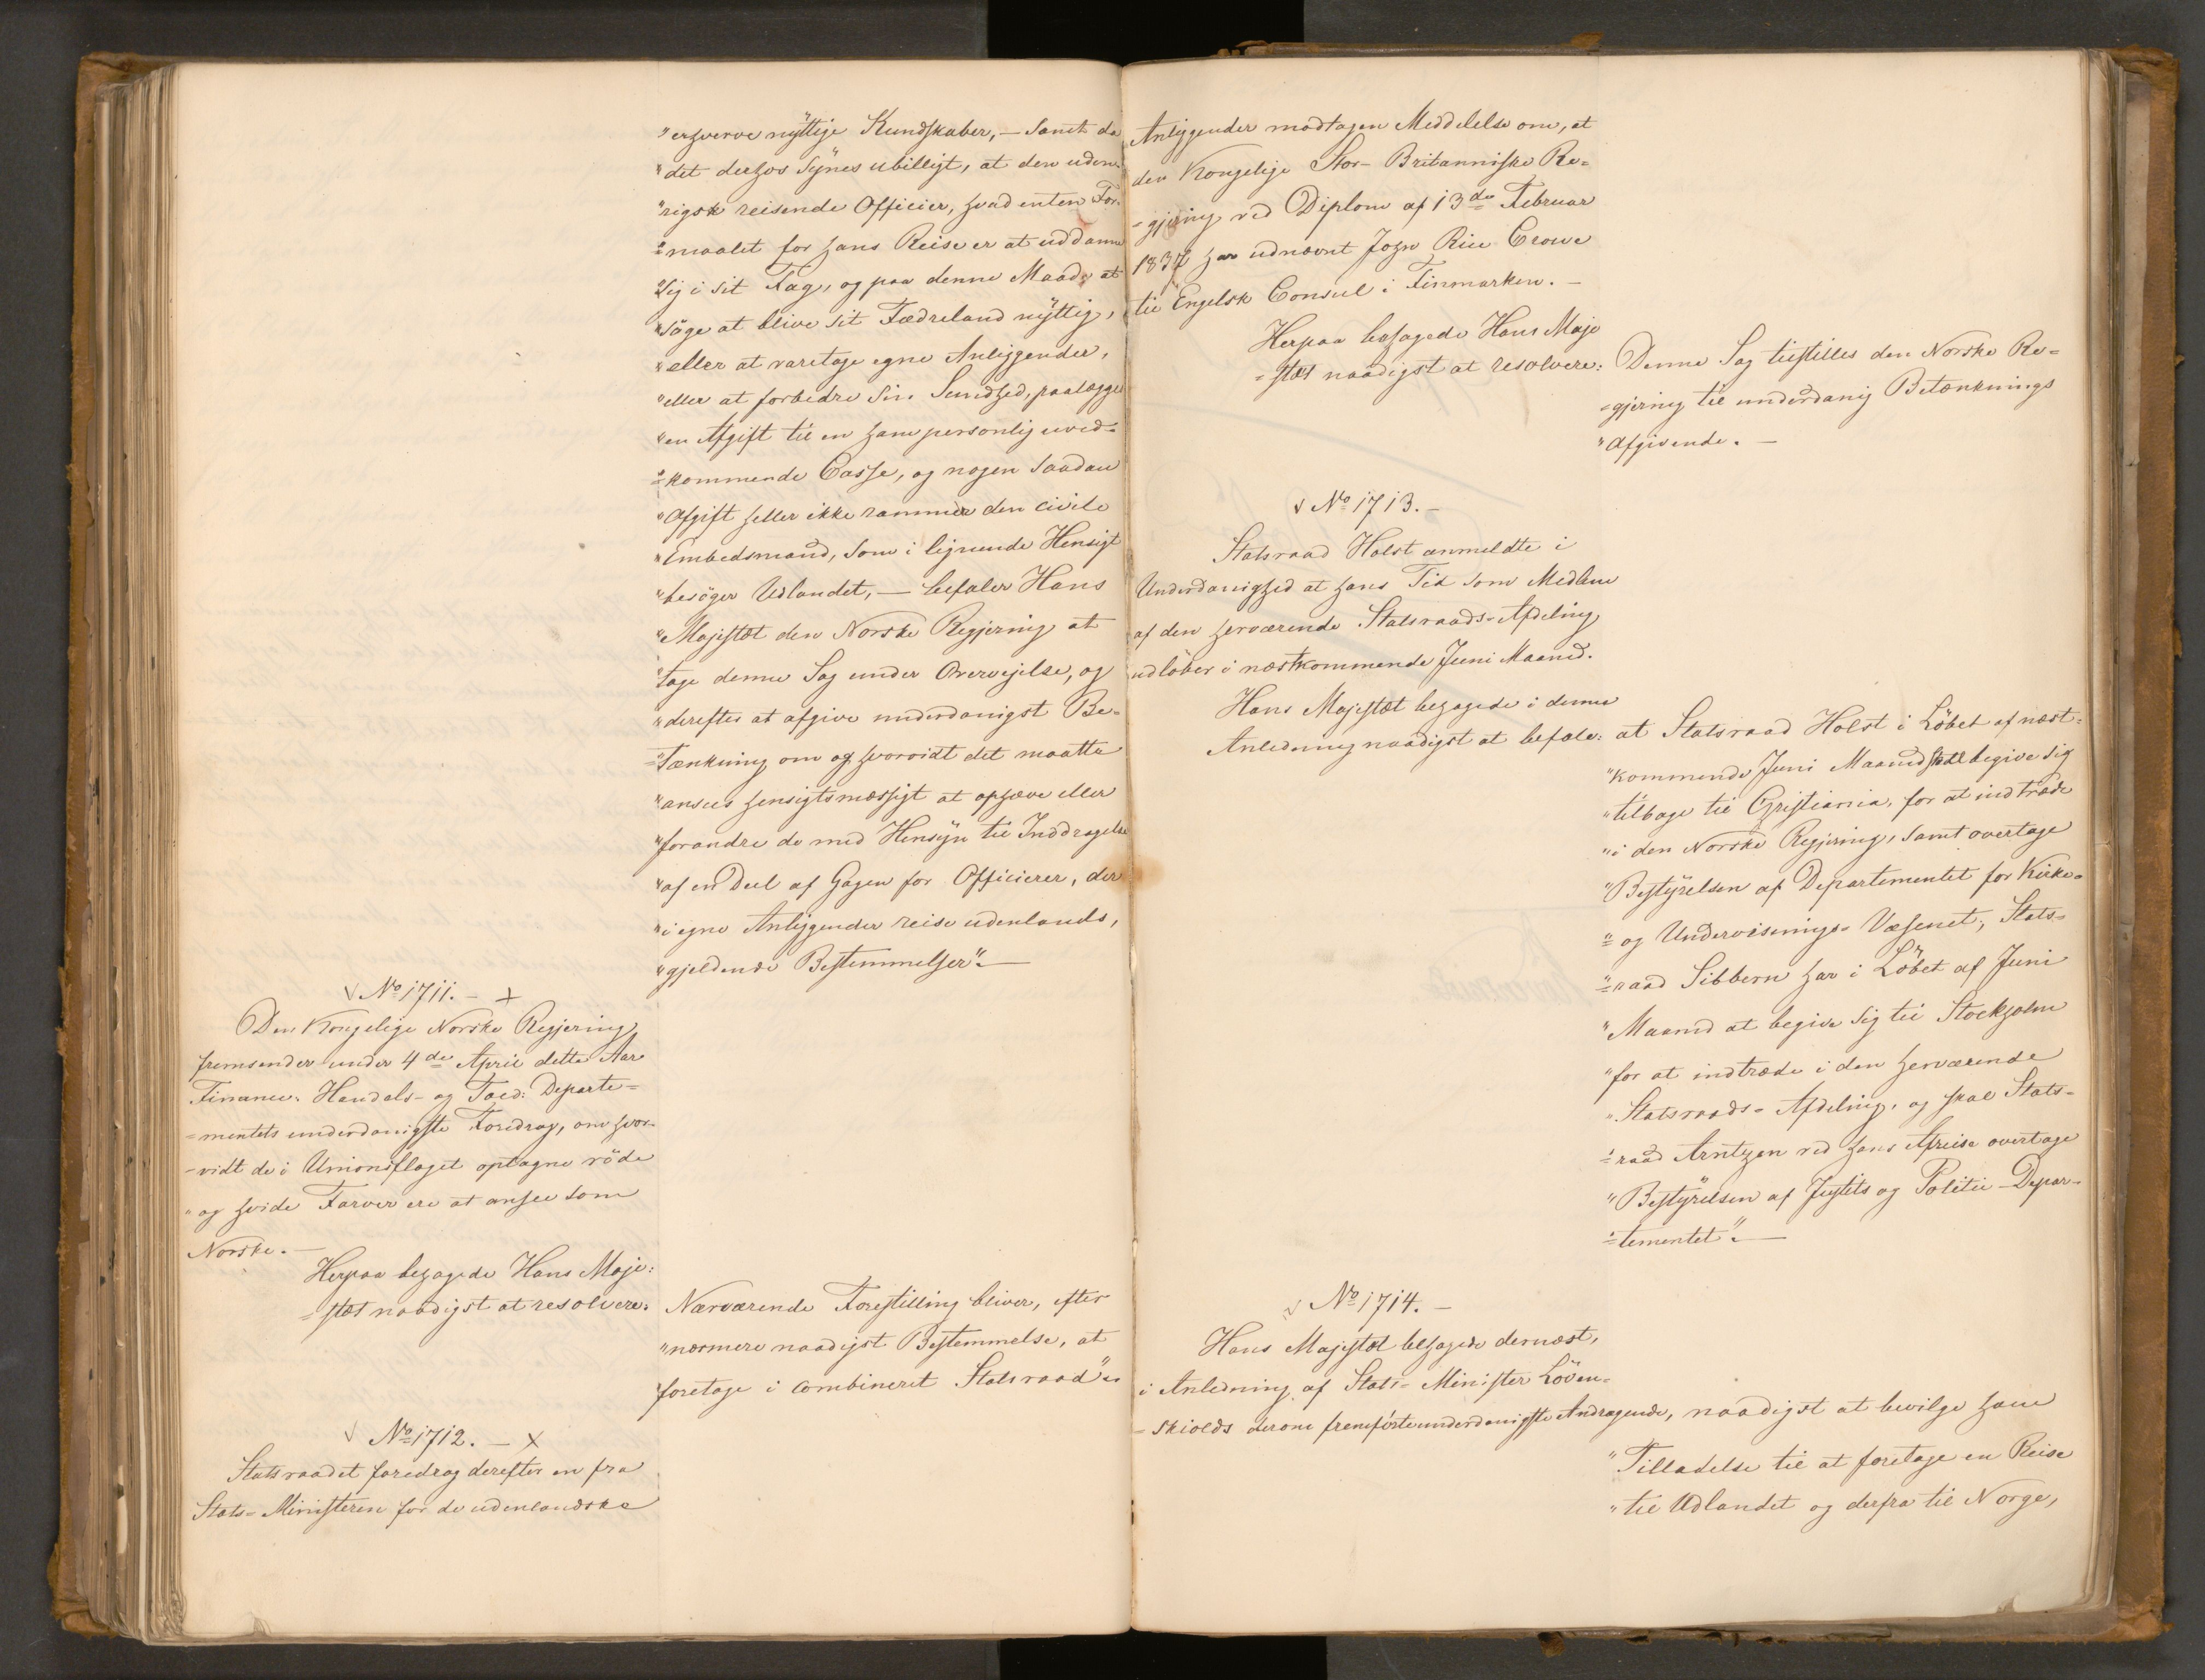 "erhverve nyttige Kundskaber, — samt da
"det derhos synes ubilligt, at den uden-
"rigsk reisende Officier, hvad enten For-
"=maalet for hans Reise er at uddanne
"sig i sit Fag, og paa denne Maade at
"søge at blive sit Fædreland nyttig,
"eller at varetage egne Anliggender,
"eller at forbedre sin Sundhed, paalægges
"en Afgift til en ham personlig uved-
"=kommende Casse, og nogen saadan
"Afgift heller ikke rammer den civile
"Embedsmand, som i lignende Hensigt
"besøger Udlandet, — befaler Hans
"Majestæt den Norske Regjering at
"tage denne Sag under Overvejelse, og
"derefter at afgive underdanigst Be-
"=tænkning om og hvorvidt det maatte
"ansees hensigtsmæssigt at ophæve eller
"forandre de med Hensyn til Inddragelse
"af en Deel af Gagen for Officierer, der
"i egne Anliggender reise udenlands,
"gjeldende Bestemmelser". —
√ No 1711. — +
Den Kongelige Norske Regjering
fremsender under 4de April dette Aar
Finance- Handels- og Told- Departe=
=mentets underdanigste Foredrag, om hvor-
-vidt de i Unionsflaget optagne röde
" og hvide Farver ere at ansee som
Norske. —
Herpaa behagede Hans Maje-
=stæt naadigst at resolvere:
Nærværende Forestilling bliver, efter
"nærmere naadigst Bestemmelse, at
"foretage i combineret Statsraad".
√ No 1712. — x
Statsraadet foredrog derefter en fra
Stats=Ministeren for de udenlandske
Anliggender modtagen Meddelelse om, at
den Kongelige Stor- Britanniske Re=
=gjering ved Diplom af 13de Februar
1837 har udnævnt John Rice Crowe
til Engelsk Consul i Finmarken. —
Herpaa behagede Hans Maje
=stæt naadigst at resolvere:
Denne Sag tilstilles den Norske Re=
=gjering til underdanig Betænknings
"Afgivende. —
√ No 1713. —
Statsraad Holst anmeldte i
Underdanighed at hans Tid som Medlem
af den herværende Statsraads-Afdeling
udlöber i næstkommende Juni Maaned.
Hans Majestæt behagede i denne
Anledning naadigst at befale:
at Statsraad Holst i Löbet af næst=
"kommende Juni Maaned skal begive sig
"tilbage til Christiania, for at indtræde
"i den Norske Regjering, samt overtage
"Bestyrelsen af Departementet for Kirke=
"= og Underviisnings- Væsenet; Stats=
"=raad Sibbern har i Löbet af Juni
"Maaned at begive sig til Stockholm
"for at indtræde i den herværende
"Statsraads= Afdeling, og skal Stats=
"=raad Arntzen ved hans Afreise overtage
"Bestyrelsen af Justits og Politie-Depar-
"=tementet". —
√ No 1714. —
Hans Majestæt behagede dernæst,
i Anledning af Stats= Minister Löven=
=skiolds derom fremförte underdanigste Andragende, naadigst at bevilge ham
"Tilladelse til at foretage en Reise
"til Udlandet og derfra til Norge,